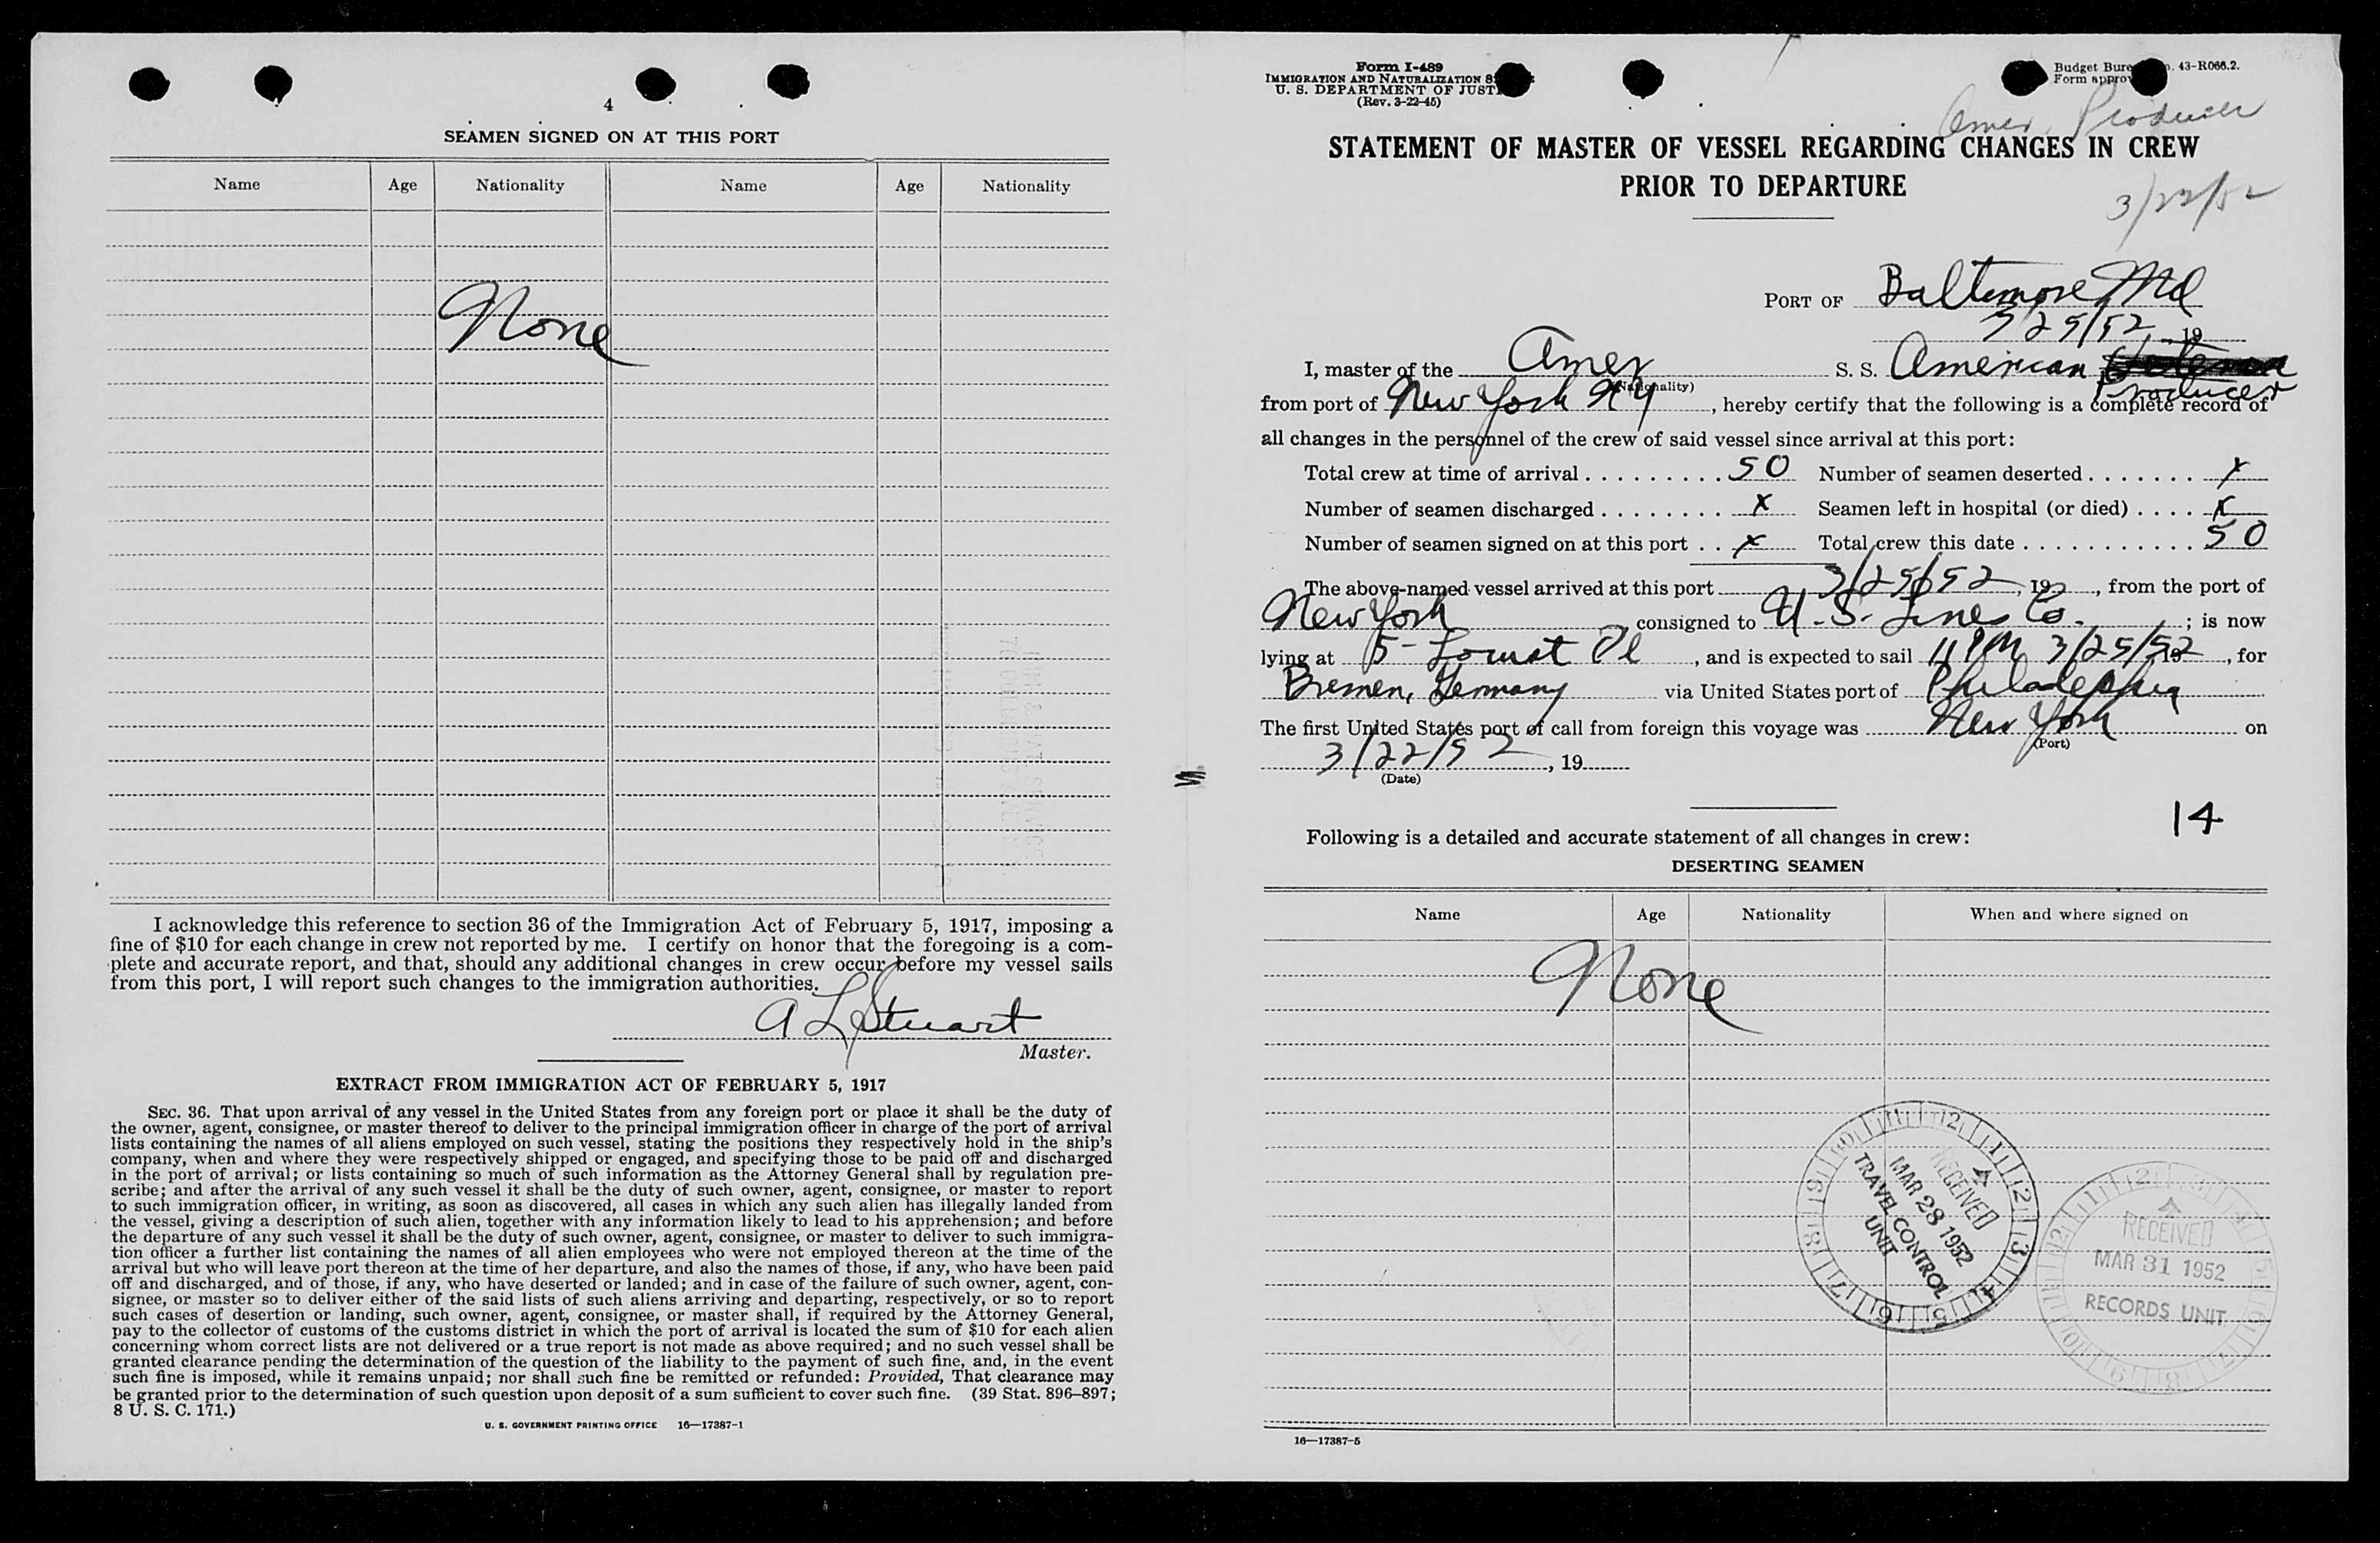 4
SEAMEN SIGNED ON AT THIS PORT
Name Age Nationality Name Age Nationality
None
I acknowledge this reference to section 36 of the Immigration Act of February 5, 1917, imposing a
fine of $10 for each change in crew not reported by me. I certify on honor that the foregoing is a com-
plete and accurate report, and that, should any additional changes in crew occur before my vessel sails
from this port, I will report such changes to the immigration authorities.
A L Stuart
Master.
EXTRACT FROM IMMIGRATION ACT OF FEBRUARY 5, 1917
SEC. 36. That upon arrival of any vessel in the United States from any foreign port or place it shall be the duty of
the owner, agent, consignee, or master thereof to deliver to the principal immigration officer in charge of the port of arrival
lists containing the names of all aliens employed on such vessel, stating the positions they respectively hold in the ship's
company, when and where they were respectively shipped or engaged, and specifying those to be paid off and discharged
in the port of arrival; or lists containing so much of such information as the Attorney General shall by regulation pre-
scribe; and after the arrival of any such vessel it shall be the duty of such owner, agent, consignee, or master to report
to such immigration officer, in writing, as soon as discovered, all cases in which any such alien has illegally landed from
the vessel, giving a description of such alien, together with any information likely to lead to his apprehension; and before
the departure of any such vessel it shall be the duty of such owner, agent, consignee, or master to deliver to such immigra-
tion officer a further list containing the names of all alien employees who were not employed thereon at the time of the
arrival but who will leave port thereon at the time of her departure, and also the names of those, if any, who have been paid
off and discharged, and of those, if any, who have deserted or landed; and in case of the failure of such owner, agent, con-
signee, or master so to deliver either of the said lists of such aliens arriving and departing, respectively, or so to report
such cases of desertion or landing, such owner, agent, consignee, or master shall, if required by the Attorney General,
pay to the collector of customs of the customs district in which the port of arrival is located the sum of $10 for each alien
concerning whom correct lists are not delivered or a true report is not made as above required; and no such vessel shall be
granted clearance pending the determination of the question of the liability to the payment of such fine, and, in the event
such fine is imposed, while it remains unpaid; nor shall such fine be remitted or refunded: Provided, That clearance may
be granted prior to the determination of such question upon deposit of a sum sufficient to cover such fine. (39 Stat. 896–897;
8 U. S. C. 171.)
U. S. GOVERNMENT PRINTING OFFICE 16—17387-1
Form I-489
IMMIGRATION AND NATURALIZATION
U. S. DEPARTMENT OF JUST
(Rev. 3-22-45)
Budget Bure 43-R066.2.
Form appro
Amer. Producer
STATEMENT OF MASTER OF VESSEL REGARDING CHANGES IN CREW
PRIOR TO DEPARTURE
3/22/52
PORT OF Baltimore, Md
3 25/52, 19
I, master of the Amer S. S. American
(Nationality) Producer
from port of New York N Y, hereby certify that the following is a complete record of
all changes in the personnel of the crew of said vessel since arrival at this port:
Total crew at time of arrival 50 Number of seamen deserted x
Number of seamen discharged x Seamen left in hospital (or died) x
Number of seamen signed on at this port x Total crew this date 50
The above-named vessel arrived at this port 3/25/52, 19, from the port of
New York consigned to U. S. Lines Co.; is now
lying at 5- Locust Pt, and is expected to sail 11 PM 3/25/52 19, for
Bremen, Germany via United States port of Philadelphia
The first United States port of call from foreign this voyage was New York on
(Port)
3/22/52, 19
(Date)
14
Following is a detailed and accurate statement of all changes in crew:
DESERTING SEAMEN
Name Age Nationality When and where signed on
None
RECEIVED
MAR 28 1952
TRAVEL CONTROL
UNIT
RECEIVED
MAR 31 1952
RECORDS UNIT
16—17387-5